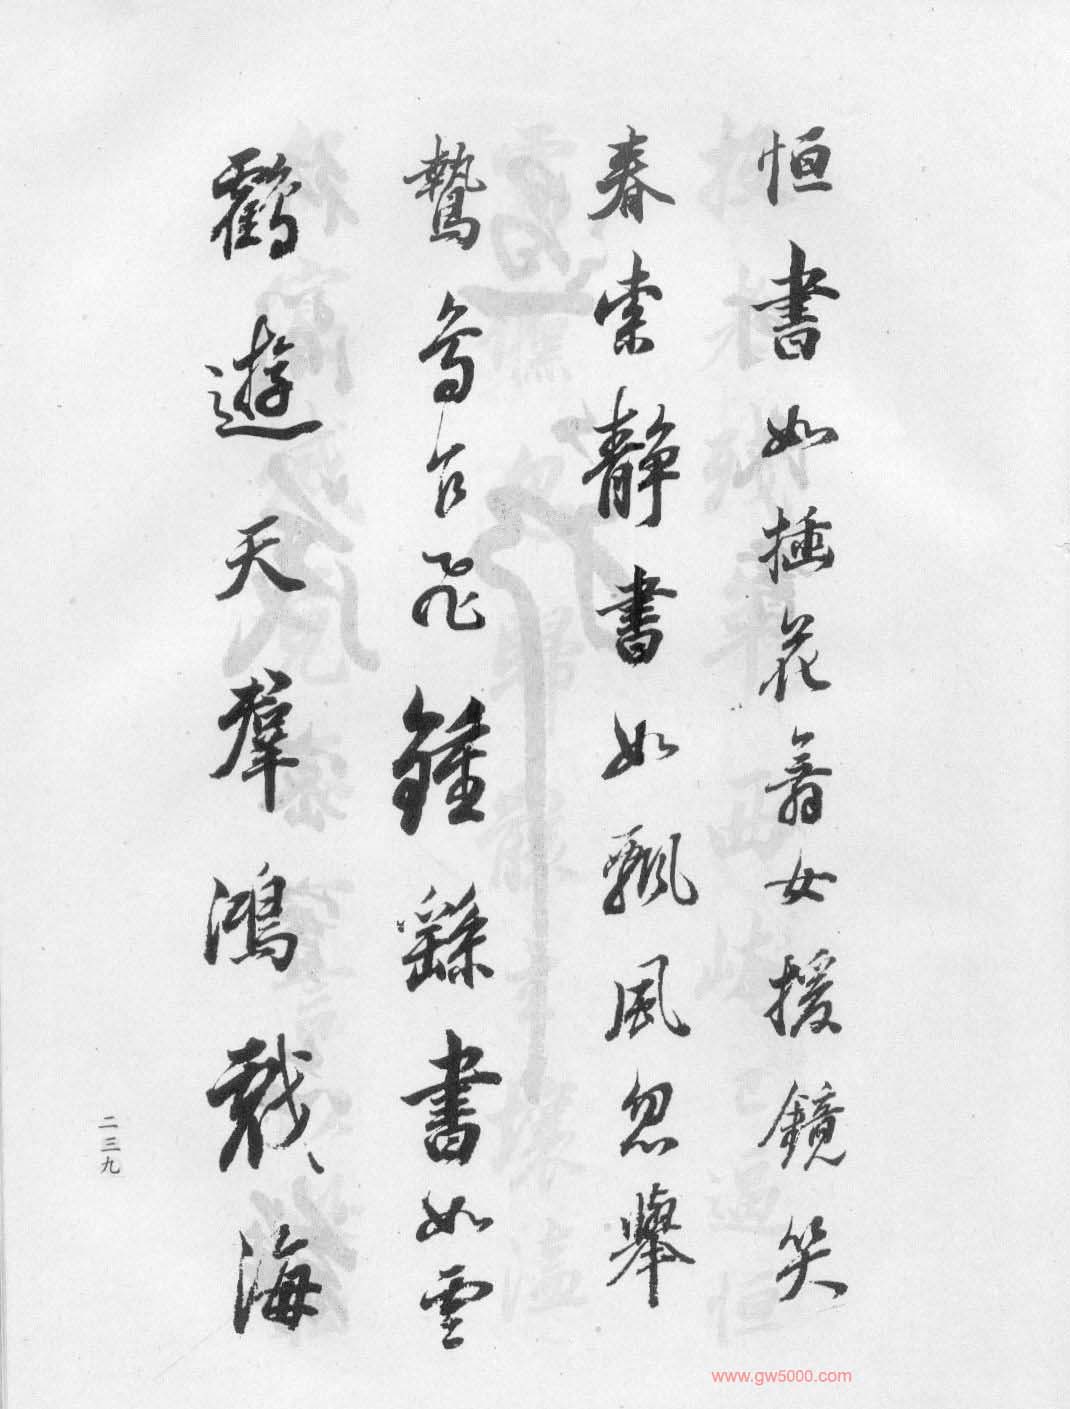 恒書如插花舞女援鏡笑
春索靜書如飄風忽舉
鷙鳥乍飛鍾繇書如雲
鸖遊天羣鴻戲海
二三九
www.gw5000.com